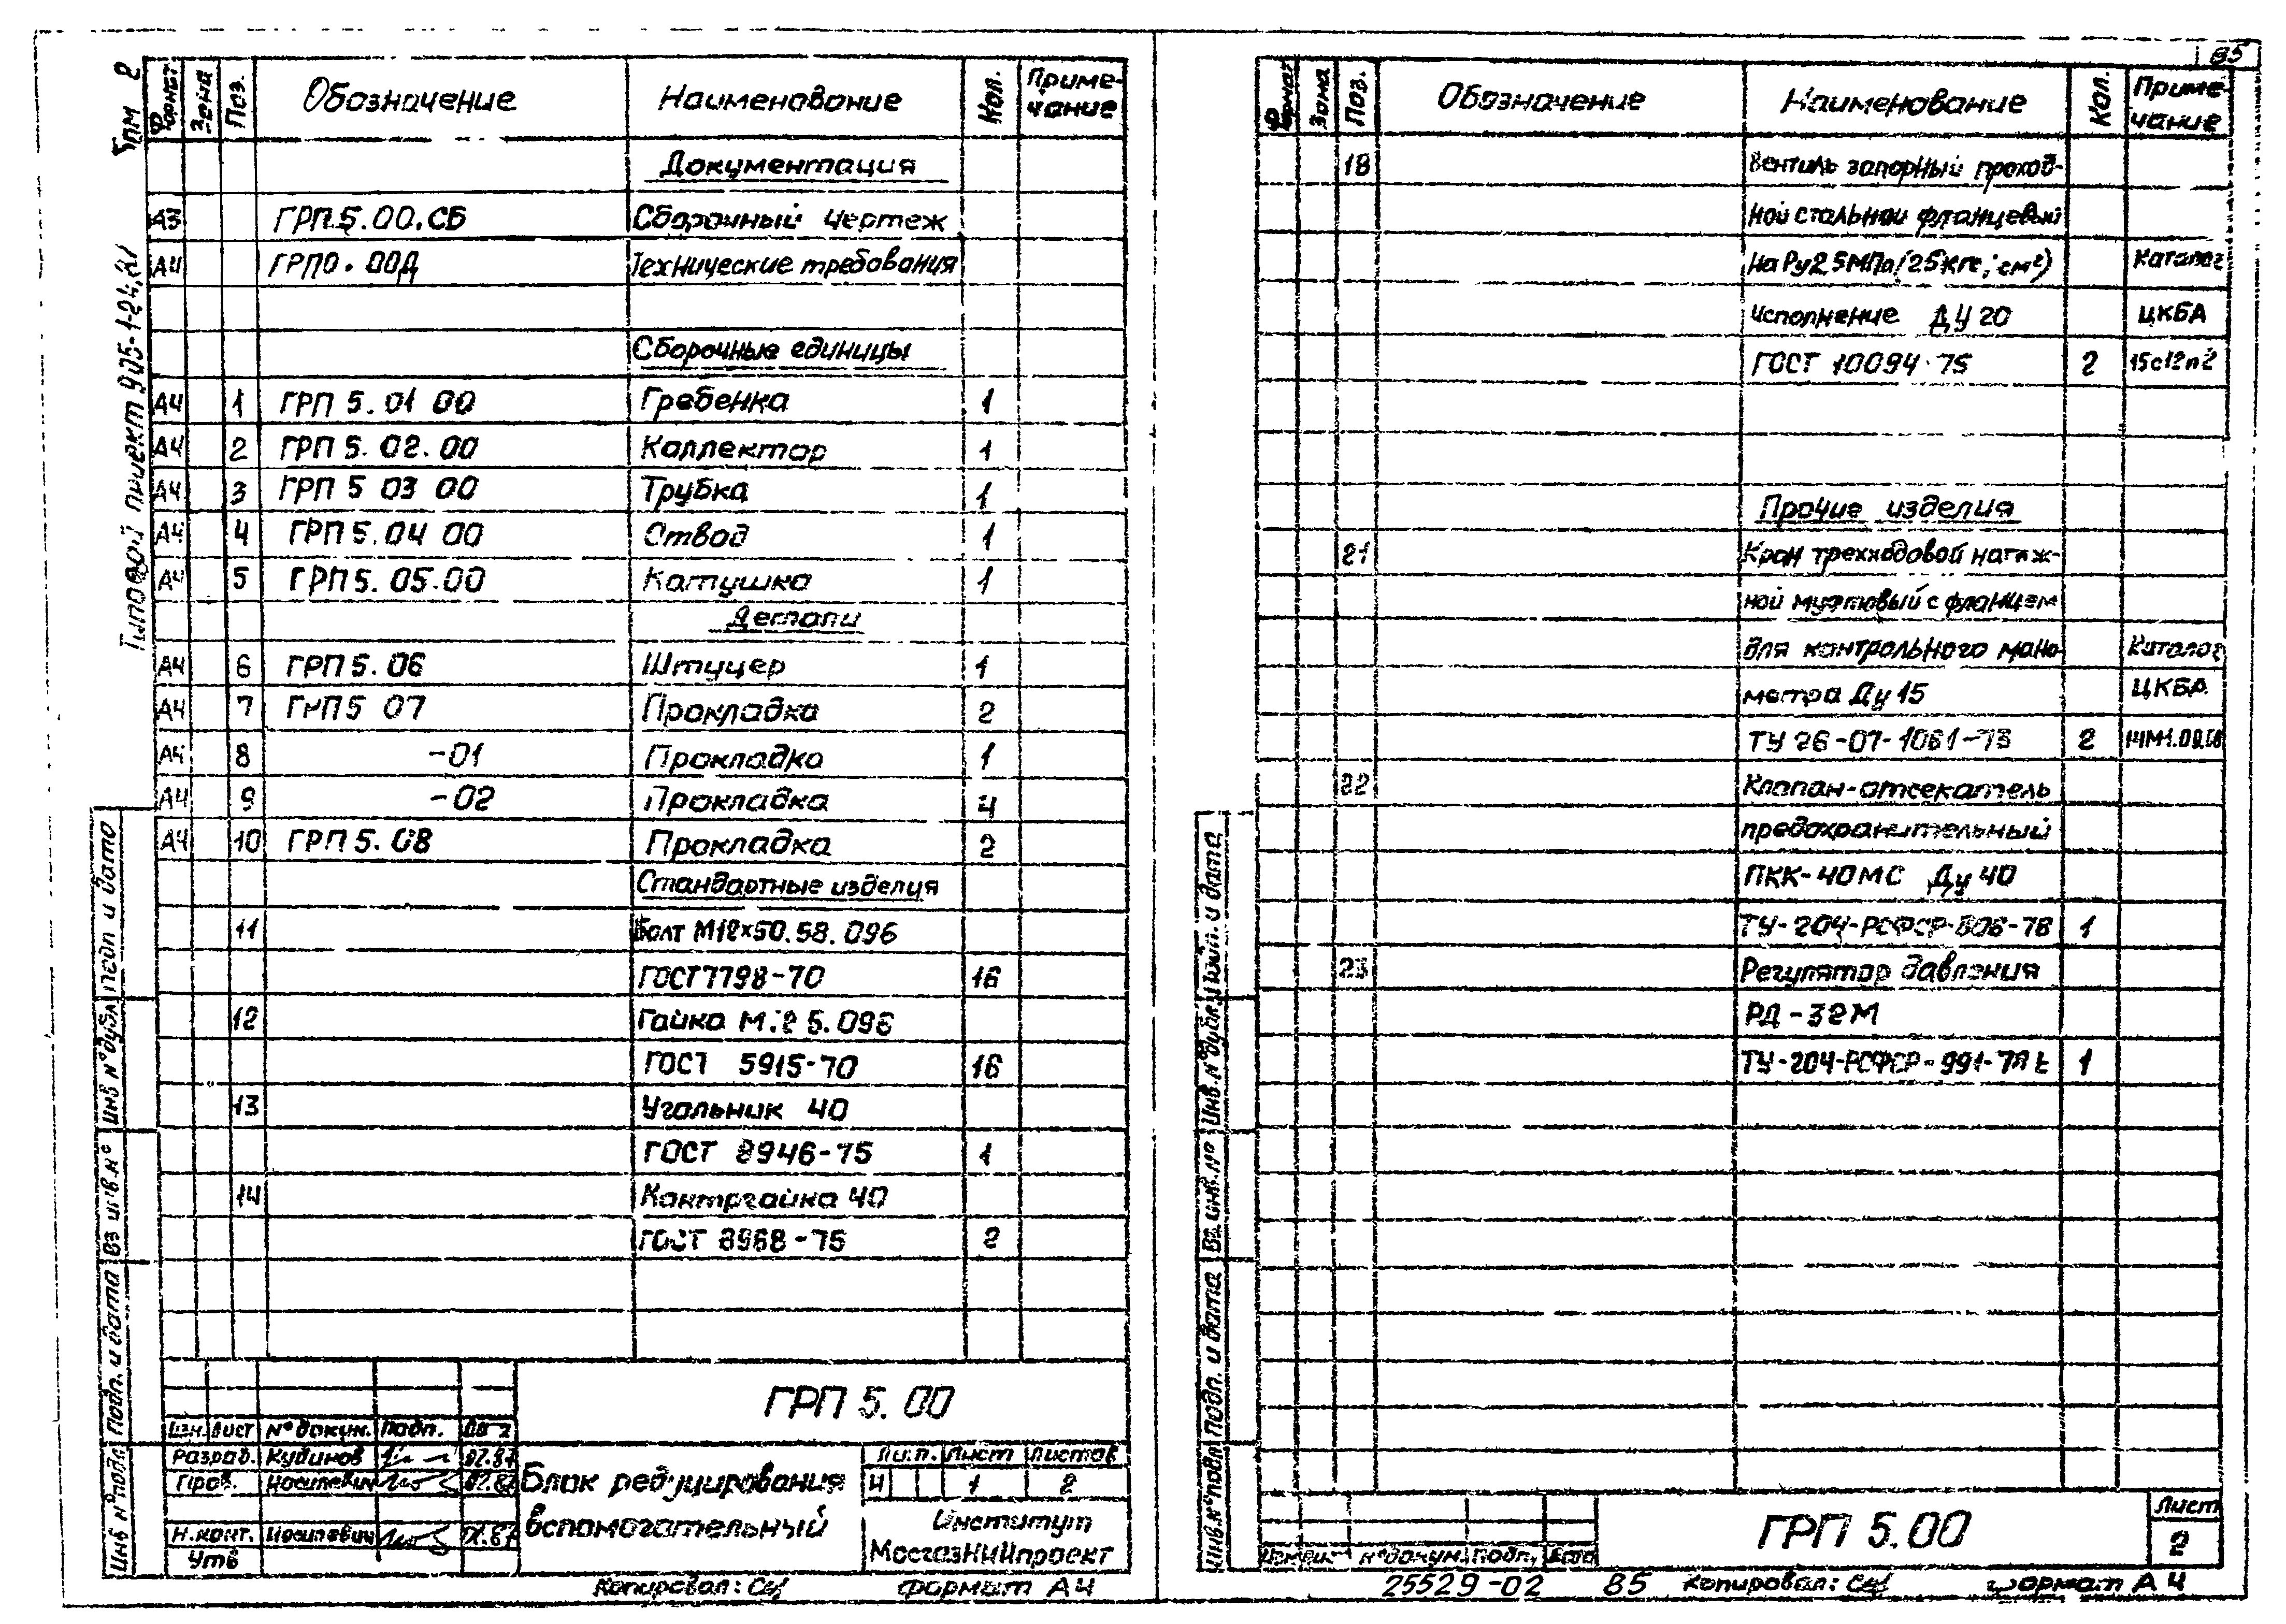 85
Типовой проект 905-1-24.87
Формат Зона Поз. Обозначение Наименование Кол. Приме-
чание
Документация
А3 ГРП.5.00.СБ Сборочный чертеж
А4 ГРП0.00Д Технические требования
Сборочные единицы
А4 1 ГРП 5.01 00 Гребенка 1
А4 2 ГРП 5.02.00 Коллектор 1
А4 3 ГРП 5 03 00 Трубка 1
А4 4 ГРП 5.04 00 Отвод 1
А4 5 ГРП 5.05.00 Катушка 1
Детали
А4 6 ГРП 5.06 Штуцер 1
А4 7 ГРП 5 07 Прокладка 2
А4 8 -01 Прокладка 1
А4 9 -02 Прокладка 4
А4 10 ГРП 5.08 Прокладка 2
Стандартные изделия
11 Болт М12×50.58.096
ГОСТ 7798-70 16
12 Гайка М12 5.096
ГОСТ 5915-70 16
13 Угольник 40
ГОСТ 8946-75 1
14 Контргайка 40
ГОСТ 8968-75 2
Подп и дата
Инв N° дубл
Вз инв.N°
Подп. и дата
Инв N° подл
ГРП 5.00
Изм. Лист N° докум. Подп.
Разраб. Кудинов 02.87
Пров. Иосилевич 02.87
Н.конт. Иосилевич
Утв
Блок редуцирования
вспомогательный
Лит. Лист Листов
И 1 2
Институт
МосгазНИИпроект
Копировал: Формат А4
Формат Зона Поз. Обозначение Наименование Кол. Приме-
чание
18 Вентиль запорный проход-
ной стальной фланцевый
на Ру2,5МПа (25кгс/см²) Каталог
Исполнение ДУ 20 ЦКБА
ГОСТ 10094-75 2
Прочие изделия
21 Кран трехходовой натяж-
ной муфтовый с фланцем
для контрольного мано- Каталог
метра Ду 15 ЦКБА
ТУ 26-07-1061-73 2
22 Клапан-отсекатель
предохранительный
ПКК-40МС Ду 40
1
23 Регулятор давления
РД-32М
1
Подп. и дата
Инв. N° дубл
Вз. инв. N°
Подп. и дата
Инв.N° подл
N° докум. Подп. Дата
ГРП 5.00
Лист
2
25529-02 85 Копировал: Формат А4